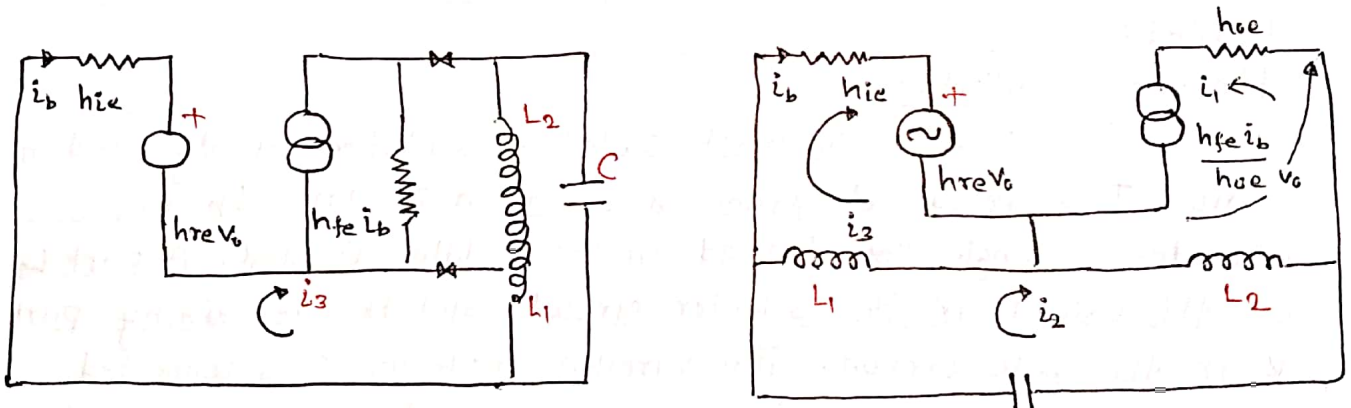 i_b hie
+
hre v_o
hfe i_b
L2
C
L1
i3
i_b hie
+
hre v_o
i3
hoe
i1
hfe i_b
hoe
v_o
L1
L2
i2